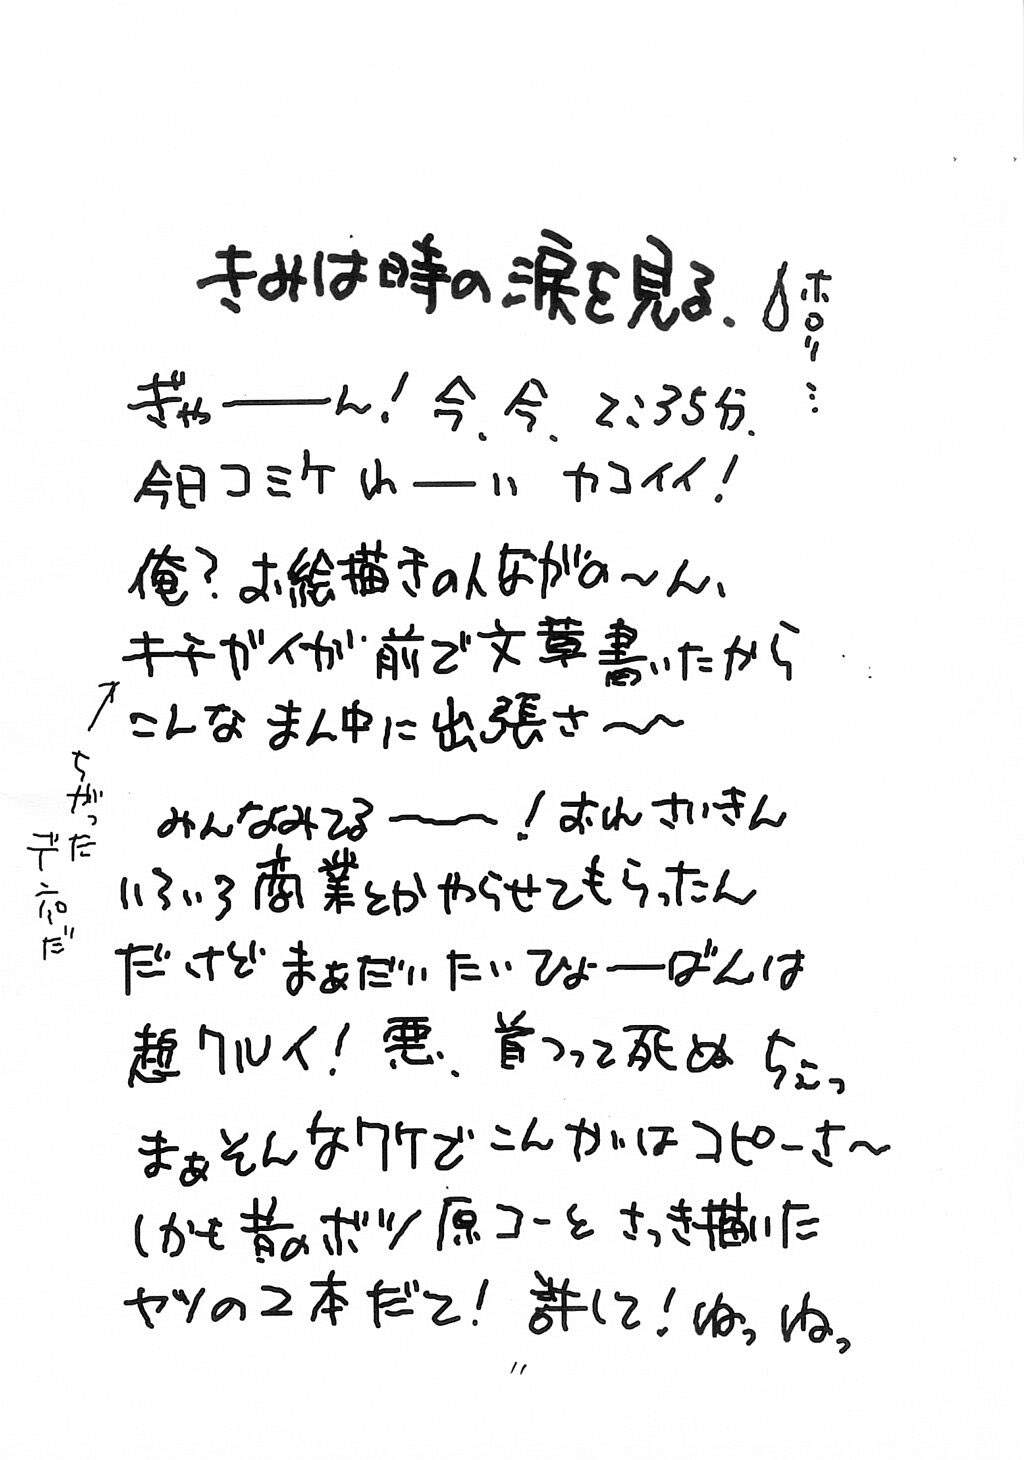 きみは時の涙を見る、
ポロッ…
ぎゃーーん！今、今、2:35分、
今日コミケわーい カコイイ！
俺？お絵描きの人ながの〜ん、
キチガイが前で文章書いたから
こんなまん中に出張さ〜〜
ちがった
デムパだ
みんなみてるーー！おれさいきん
いろいろ商業とかやらせてもらったん
だけどまぁだいたいひょーばんは
超クルイ！悪、首つって死ぬ ちぇっ
まぁそんなワケでこんかいはコピーさ〜
しかも昔のボツ原コーとさっき描いた
ヤツの2本だて！許して！ねっねっ
11